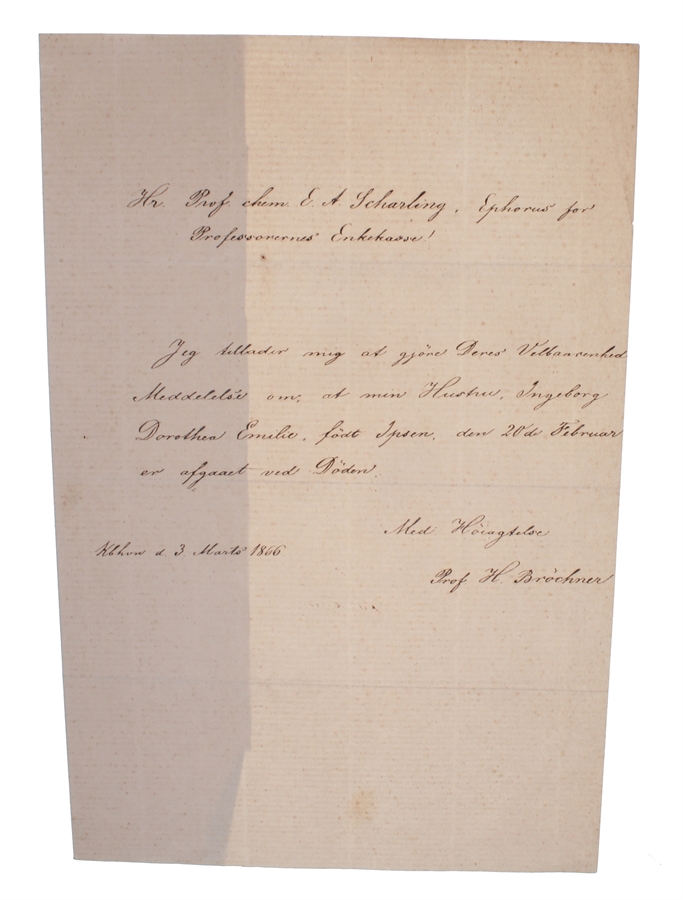 Hr. Prof. chem. E. A. Scharling, Ephorus for
Professorernes Enkekasse!
Jeg tillader mig at gjöre Deres Velbaarenhed
Meddelelse om, at min Hustru, Ingeborg
Dorothea Emilie, födt Ipsen, den 20de Februar
er afgaaet ved Döden.
Med Höiagtelse
Kbhvn d. 3 Marts 1866
Prof. H. Bröchner